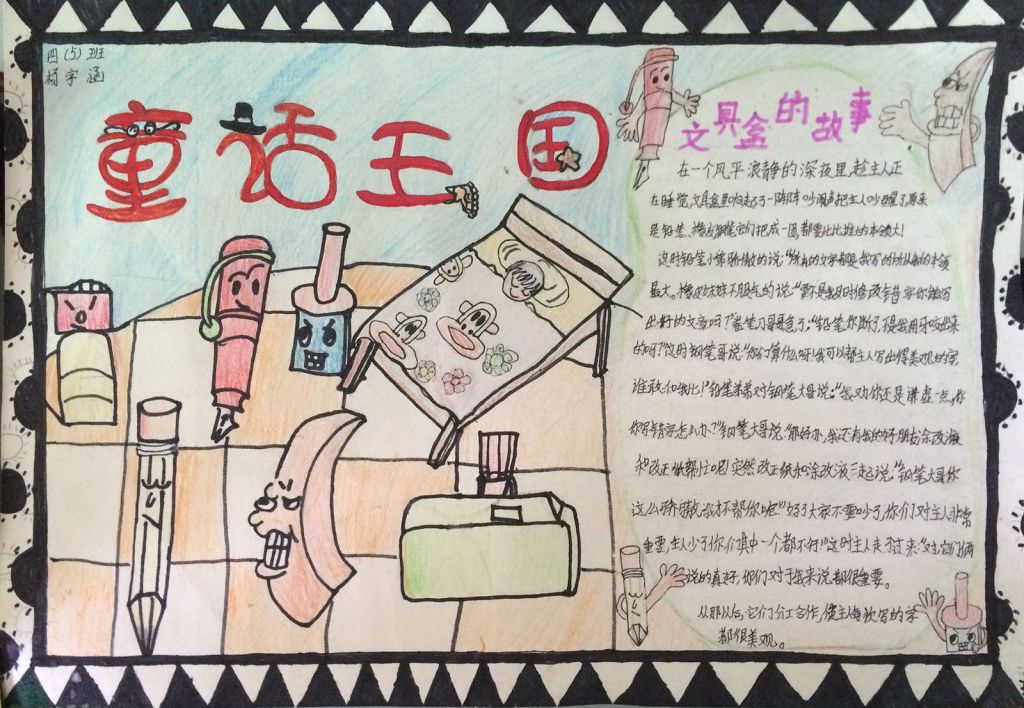 四(5)班
杨宇涵
童话王国
文具盒的故事
在一个风平浪静的深夜里,趁主人正
在睡觉,文具盒里响起了一阵阵吵闹声把主人吵醒了,原来
是铅笔、橡皮钢笔它们把成一团,都要比比谁的本领大!
这时铅笔小弟骄傲的说:“所有的文字都是我写的所以我的本领
最大。橡皮妹妹不服气的说:“要不是我及时修改错字你能写
出好的文章吗?”卷笔刀哥哥急了:“铅笔你断了,不是我用牙咬出来
的吗?”这时钢笔哥说:“你们算什么呀!我可以帮主人写出得美观的字,
谁敢和我比!”铅笔弟弟对钢笔大哥说:“我劝你还是谦虚一点,你
你写错字怎么办?”钢笔大哥说:“那好办,我还有我的好朋友涂改液
和改正纸帮忙呢!突然改正纸和涂改液一起说:“钢笔大哥你
这么骄傲,我才不帮你呢”“好了大家不要吵了,你们对主人非常
重要,主人少了你们其中一个都不行!”这时主人走了过来:“对,它们俩
说的真好,你们对于我来说都很重要。
从那以后,它们分工合作,使主人每次写的字
都很美观。